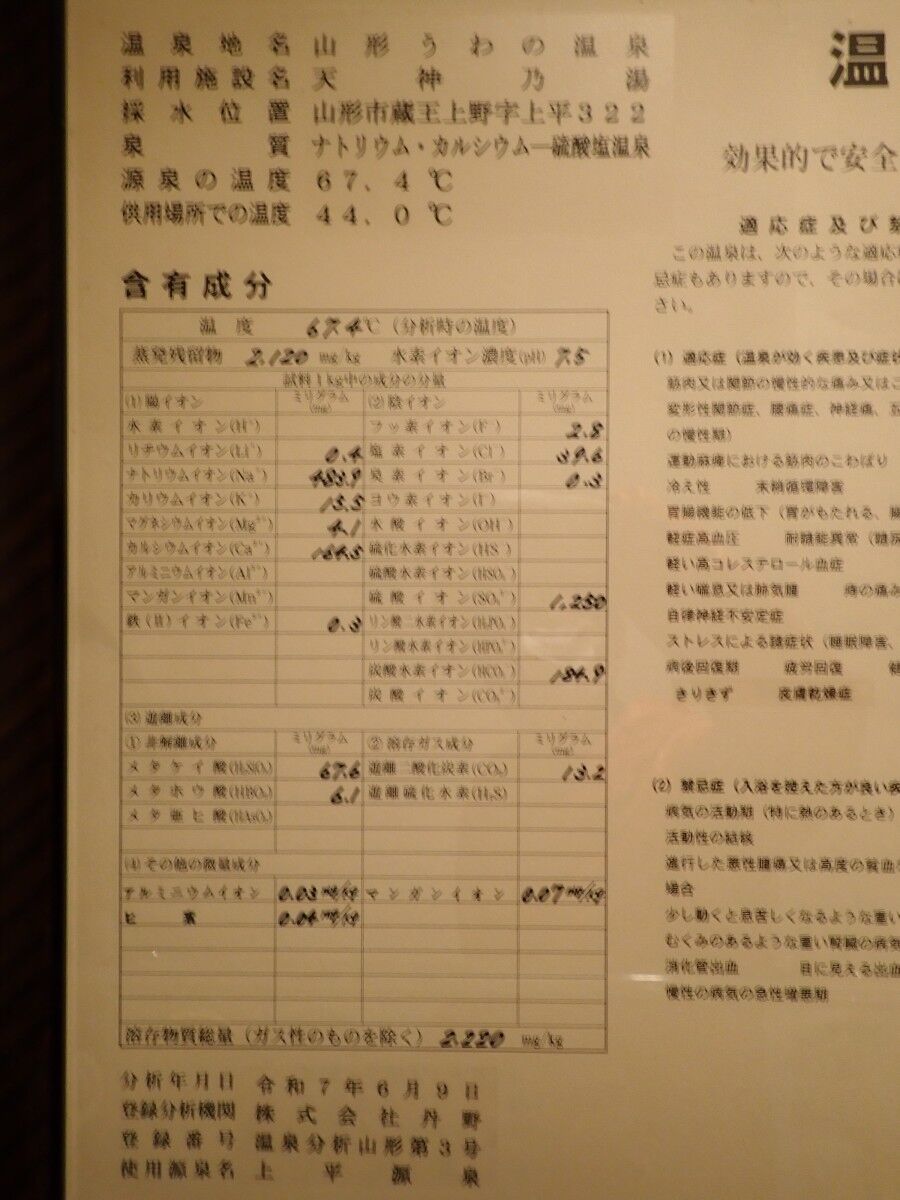 温泉地名 山形うわの温泉
利用施設名 天神乃湯
採水位置 山形市蔵王上野字上平322
泉質 ナトリウム・カルシウム―硫酸塩温泉
源泉の温度 67.4℃
供用場所での温度 44.0℃
含有成分
温度 67.4℃(分析時の温度)
蒸発残留物 2.120 mg/kg 水素イオン濃度(pH) 7.5
試料1kg中の成分の分量
(1)陽イオン ミリグラム(mg) (2)陰イオン ミリグラム(mg)
水素イオン(H⁺) フッ素イオン(F⁻) 2.8
リチウムイオン(Li⁺) 0.4 塩素イオン(Cl⁻) 39.6
ナトリウムイオン(Na⁺) 483.9 臭素イオン(Br⁻) 0.3
カリウムイオン(K⁺) 13.5 ヨウ素イオン(I⁻)
マグネシウムイオン(Mg²⁺) 4.1 水酸イオン(OH⁻)
カルシウムイオン(Ca²⁺) 164.5 硫化水素イオン(HS⁻)
アルミニウムイオン(Al³⁺) 硫酸水素イオン(HSO₄⁻)
マンガンイオン(Mn²⁺) 硫酸イオン(SO₄²⁻) 1.250
鉄(II)イオン(Fe²⁺) 0.3 リン酸二水素イオン(H₂PO₄⁻)
リン酸水素イオン(HPO₄²⁻)
炭酸水素イオン(HCO₃⁻) 184.9
炭酸イオン(CO₃²⁻)
(3)遊離成分
①非解離成分 ミリグラム(mg) ②溶存ガス成分 ミリグラム(mg)
メタケイ酸(H₂SiO₃) 67.6 遊離二酸化炭素(CO₂) 13.2
メタホウ酸(HBO₂) 6.1 遊離硫化水素(H₂S)
メタ亜ヒ酸(HAsO₂)
(4)その他の微量成分
アルミニウムイオン 0.03mg/kg マンガンイオン 0.07mg/kg
ヒ素 0.04mg/kg
溶存物質総量(ガス性のものを除く) 2.220 mg/kg
分析年月日 令和7年6月9日
登録分析機関 株式会社丹野
登録番号 温泉分析山形第3号
使用源泉名 上平源泉
温
効果的で安全
適応症及び禁
この温泉は、次のような適応
忌症もありますので、その場合
さい。
(1) 適応症(温泉が効く疾患及び症状
筋肉又は関節の慢性的な痛み又はこ
変形性関節症、腰痛症、神経痛、
の慢性期)
運動麻痺における筋肉のこわばり
冷え性 末梢循環障害
胃腸機能の低下(胃がもたれる、腸
軽症高血圧 耐糖能異常(糖尿
軽い高コレステロール血症
軽い喘息又は肺気腫 痔の痛み
自律神経不安定症
ストレスによる諸症状(睡眠障害、
病後回復期 疲労回復 健
きりきず 皮膚乾燥症
(2) 禁忌症(入浴を控えた方が良い疾
病気の活動期(特に熱のあるとき)
活動性の結核
進行した悪性腫瘍又は高度の貧血
場合
少し動くと息苦しくなるような重い
むくみのあるような重い腎臓の病気
消化管出血 目に見える出血
慢性の病気の急性増悪期